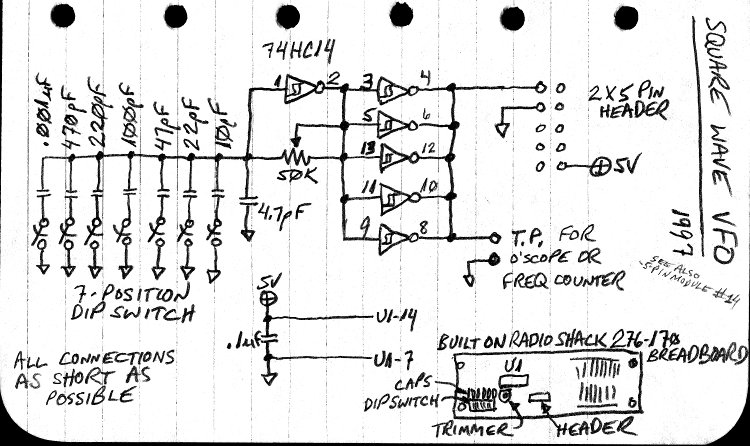 74HC14
.001µF
470pF
220pF
100pF
47pF
22pF
10pF
1
2
3
4
5
6
13
12
11
10
9
8
50K
4.7pF
2X5 PIN
HEADER
5V
T.P. FOR
O'SCOPE OR
FREQ COUNTER
SQUARE WAVE VFO
1997
SEE ALSO
SPINMODULE #14
7-POSITION
DIP SWITCH
5V
.1µF
U1-14
U1-7
ALL CONNECTIONS
AS SHORT AS
POSSIBLE
BUILT ON RADIO SHACK 276-170
BREADBOARD
U1
CAPS
DIPSWITCH
TRIMMER
HEADER